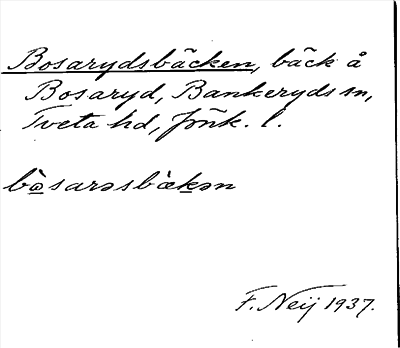 Bosarydsbäcken, bäck å
Bosaryd, Bankeryds sn,
Tveta hd, Jönk. l.
bòsarəsbækən
F. Neij 1937.